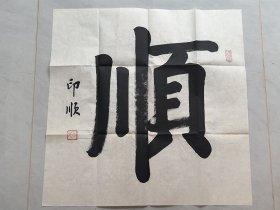 順
印順